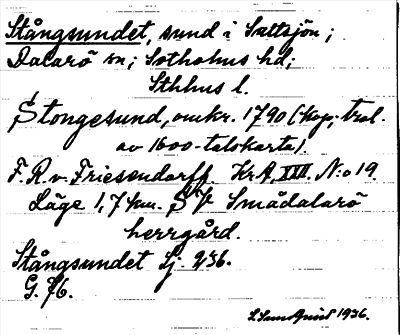 Stångsundet, sund i Sattsjön;
Dalarö sn; Sotholms hd;
Sthlms l.
Stongesund, omkr. 1790 (kop; trol.
av 1600-talskarta).
F. R. v. Friesendorff. Kr A. XIII. N:o 19.
Läge 1,7 km. SV Smådalarö
herrgård.
Stångsundet Lj. 236.
G. 76.
L Lundquist 1936.